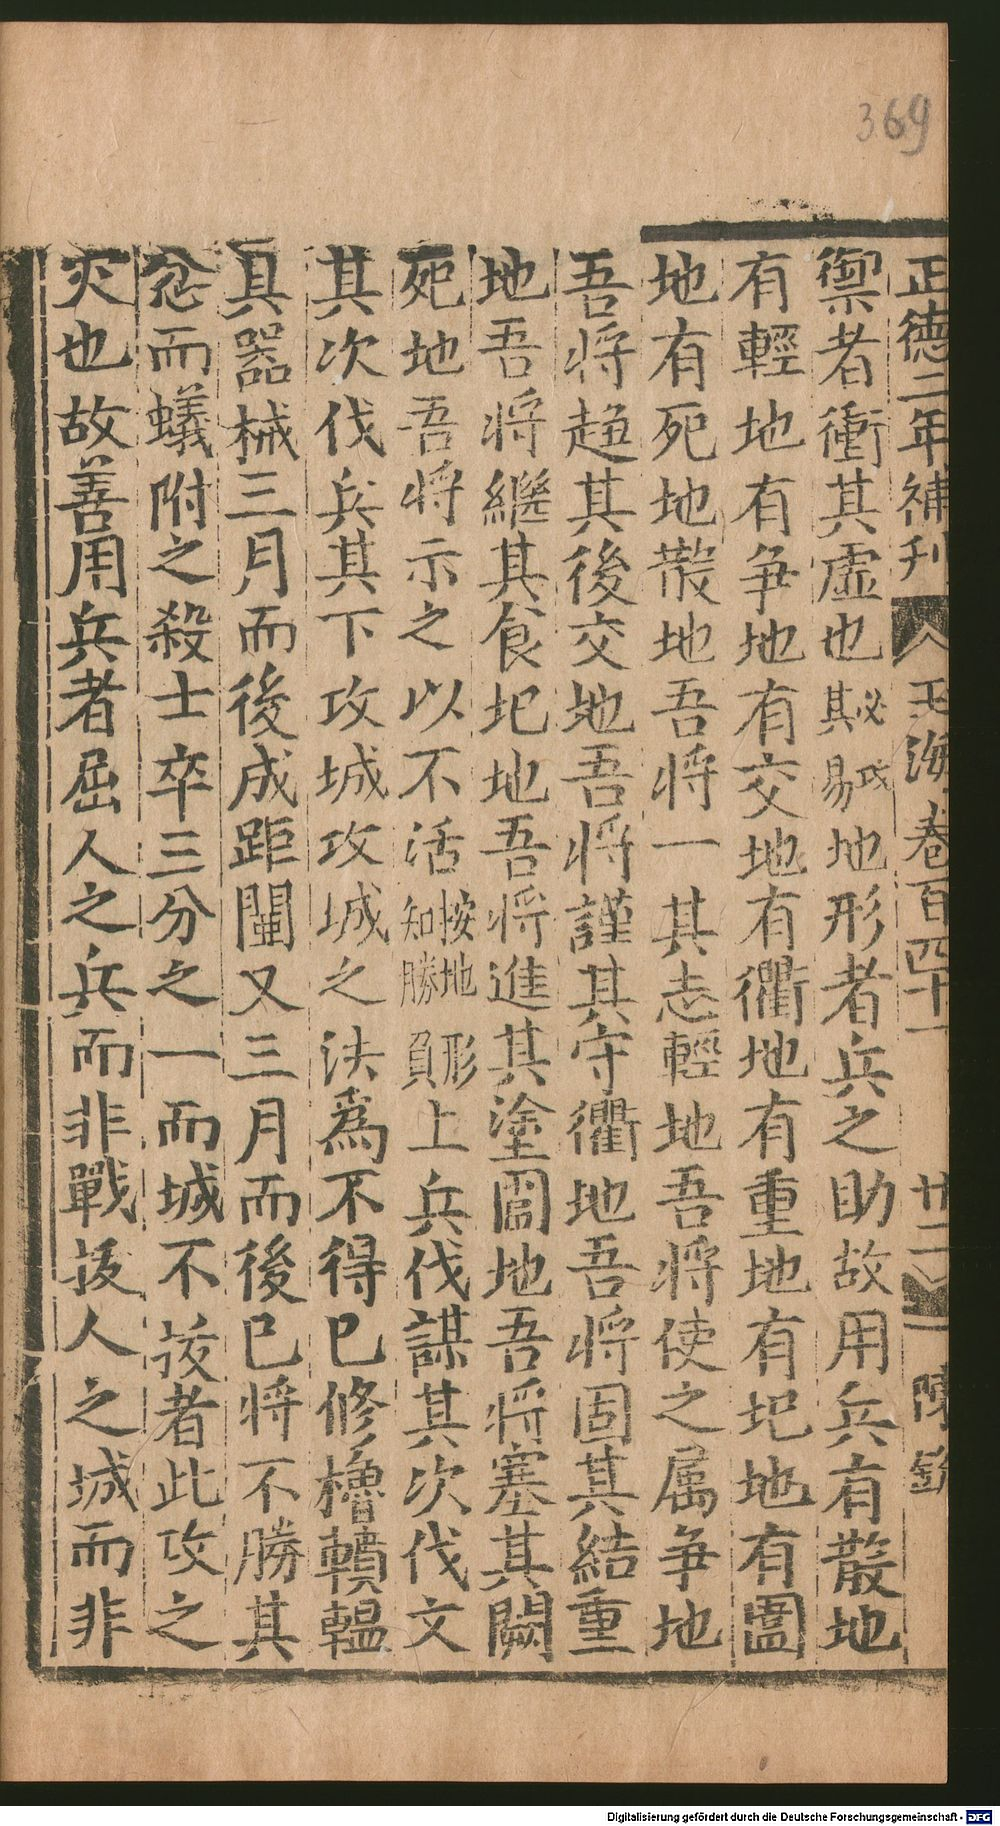 369
正德二年補刋 玉海卷百四十一 廿二 陳欽
禦者衝其虛也必攻其易地形者兵之助故用兵有散地
有輕地有爭地有交地有衢地有重地有圯地有圍
地有死地散地吾將一其志輕地吾將使之属爭地
吾將趋其後交地吾將謹其守衢地吾將固其結重
地吾將繼其食圯地吾將進其塗圍地吾將塞其闕
死地吾將示之以不活按地形知勝負上兵伐謀其次伐文
其次伐兵其下攻城攻城之法為不得已修櫓轒轀
具器械三月而後成距闉又三月而後已将不勝其
忿而蟻附之殺士卒三分之一而城不拔者此攻之
灾也故善用兵者屈人之兵而非戰拔人之城而非
Digitalisierung gefördert durch die Deutsche Forschungsgemeinschaft - DFG